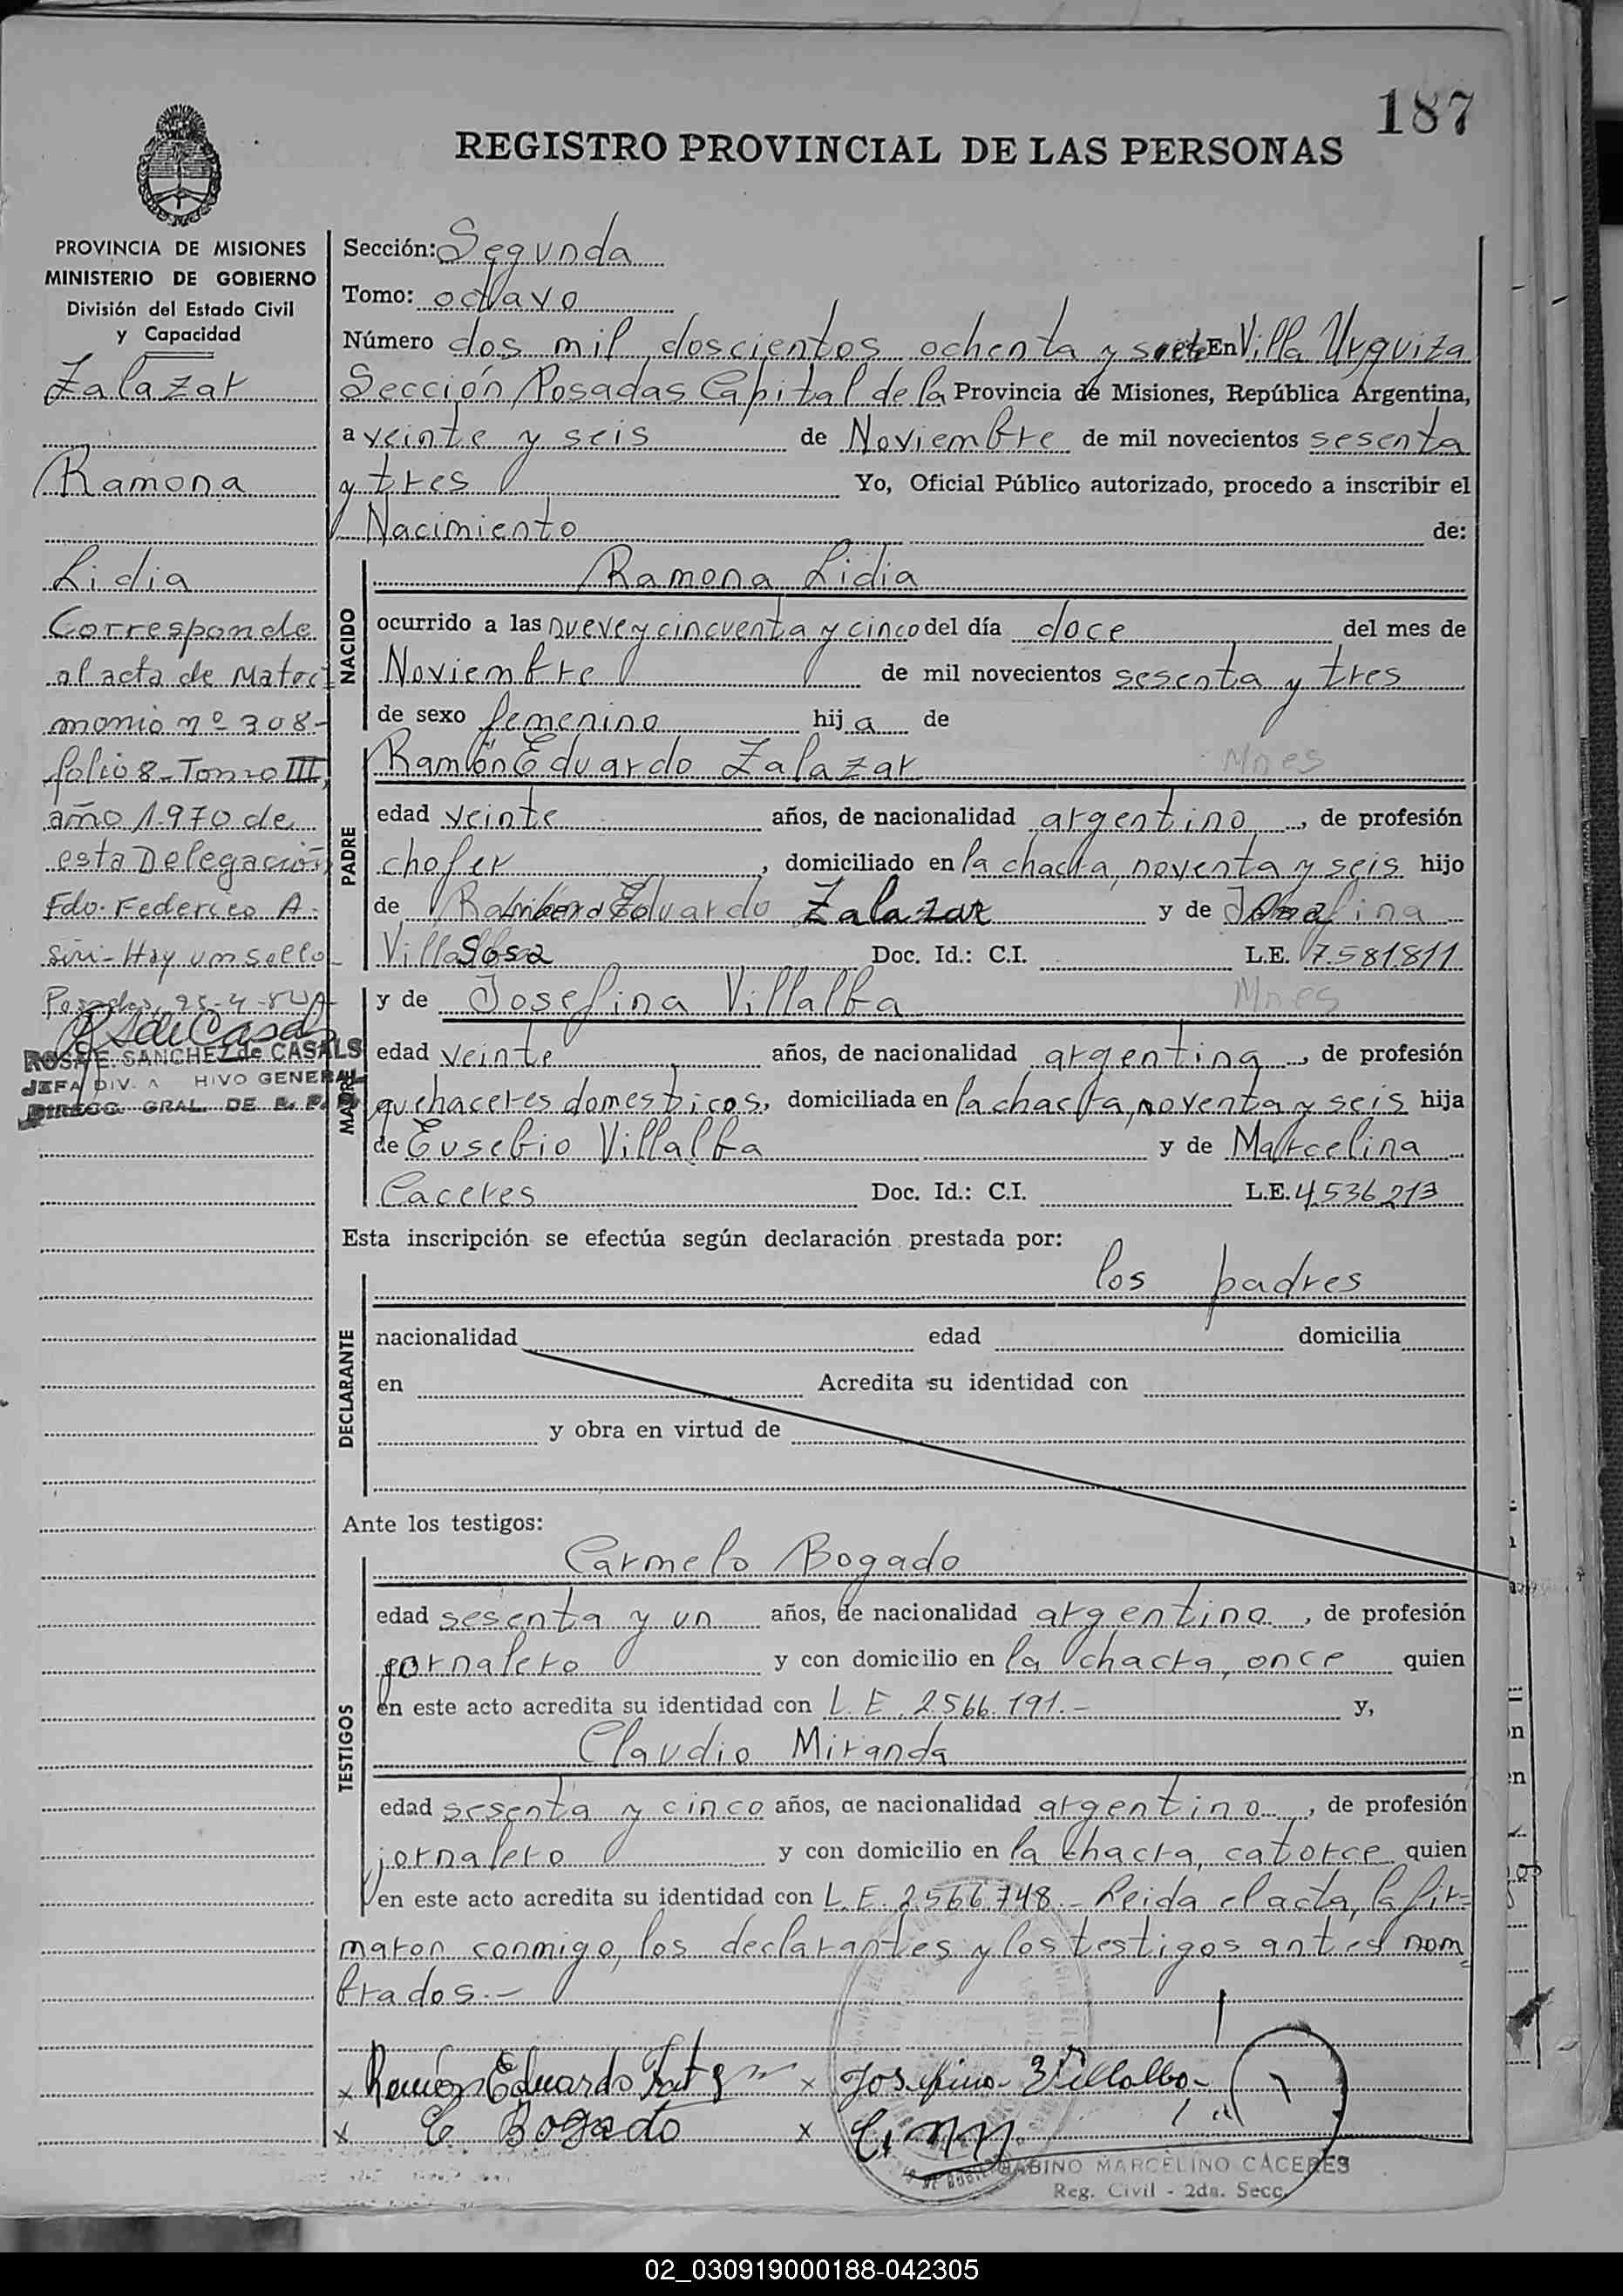 187
REGISTRO PROVINCIAL DE LAS PERSONAS
PROVINCIA DE MISIONES
MINISTERIO DE GOBIERNO
División del Estado Civil
y Capacidad
Zalazar
Ramona
Lidia
Corresponde
al acta de Matri
monio nº 308-
folio 8- Tomo III,
año 1.970 de
esta Delegación
Fdo. Federico A.
Siri- Hay un sello
Posadas, 25-4-
ROSA E. SANCHEZ de CASALS
JEFA DIV. A HIVO GENERAL
DIRECC. GRAL. DE R. P.
Sección: Segunda
Tomo: octavo
Número dos mil doscientos ochenta y siete En Villa Urquiza
Sección Posadas Capital de la Provincia de Misiones, República Argentina,
a veinte y seis de Noviembre de mil novecientos sesenta
y tres Yo, Oficial Público autorizado, procedo a inscribir el
Nacimiento de:
NACIDO
Ramona Lidia
ocurrido a las nueve y cincuenta y cinco del día doce del mes de
Noviembre de mil novecientos sesenta y tres
de sexo femenino hija de
PADRE
Ramón Eduardo Zalazar Mnes
edad veinte años, de nacionalidad argentino, de profesión
chofer, domiciliado en la chacra, noventa y seis hijo
de Eduardo Zalazar y de
Doc. Id.: C.I. L.E. 7.581.811
MADRE
y de Josefina Villalba Mnes
edad veinte años, de nacionalidad argentina, de profesión
quehaceres domesticos, domiciliada en la chacra, noventa y seis hija
de Eusebio Villalba y de Marcelina
Caceres Doc. Id.: C.I. L.E. 4.536.213
Esta inscripción se efectúa según declaración prestada por:
los padres
DECLARANTE
nacionalidad edad domicilia
en Acredita su identidad con
y obra en virtud de
Ante los testigos:
TESTIGOS
Carmelo Bogado
edad sesenta y un años, de nacionalidad argentino, de profesión
jornalero y con domicilio en la chacra, once quien
en este acto acredita su identidad con L.E. 2.566.191.- y,
Claudio Miranda
edad sesenta y cinco años, de nacionalidad argentino, de profesión
jornalero y con domicilio en la chacra, catorce quien
en este acto acredita su identidad con L.E. 2.566.748.- Leida el acta, la fir=
maron conmigo, los declarantes y los testigos antes nom=
brados.-
x Ramón Eduardo x Josefina Villalba
x C Bogado x
SABINO MARCELINO CACERES
Reg. Civil - 2da. Secc.
02_030919000188-042305